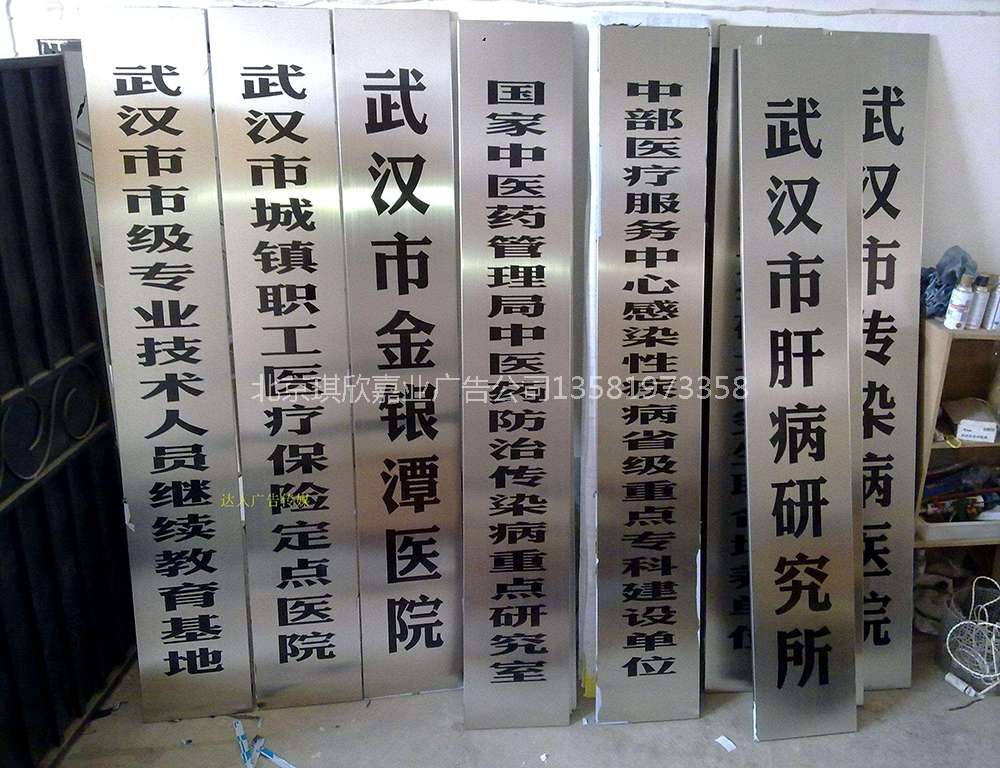 武汉市市级专业技术人员继续教育基地
武汉市城镇职工医疗保险定点医院
武汉市金银潭医院
国家中医药管理局中医药防治传染病重点研究室
中部医疗服务中心感染性疾病省级重点专科建设单位
武汉市肝病研究所
武汉市传染病医院
北京琪欣嘉业广告公司13581973358
达人广告传媒